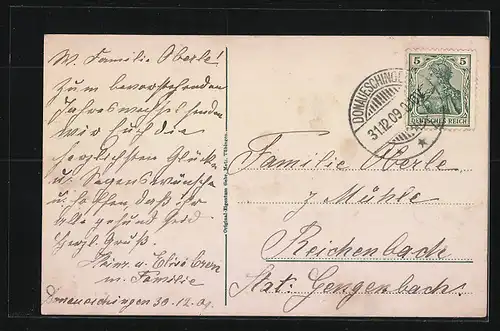 W. Familie Oberle!
Zum bevorstehenden
Jahreswechsel senden
wir Euch die
herzlichsten Glücks
u. Segenswünsche
u. hoffen daß ihr
alle gesund seid
Herzl. Gruß.
Heinr. u. Elise
m. Familie
Donaueschingen 30.12.09.
Original-Eigentum Gebr. Metz, Tübingen.
DONAUESCHINGEN
31.12.09
5 5
DEUTSCHES REICH
Familie Oberle
z Mühle
Reichenbach
Stat. Gengenbach.